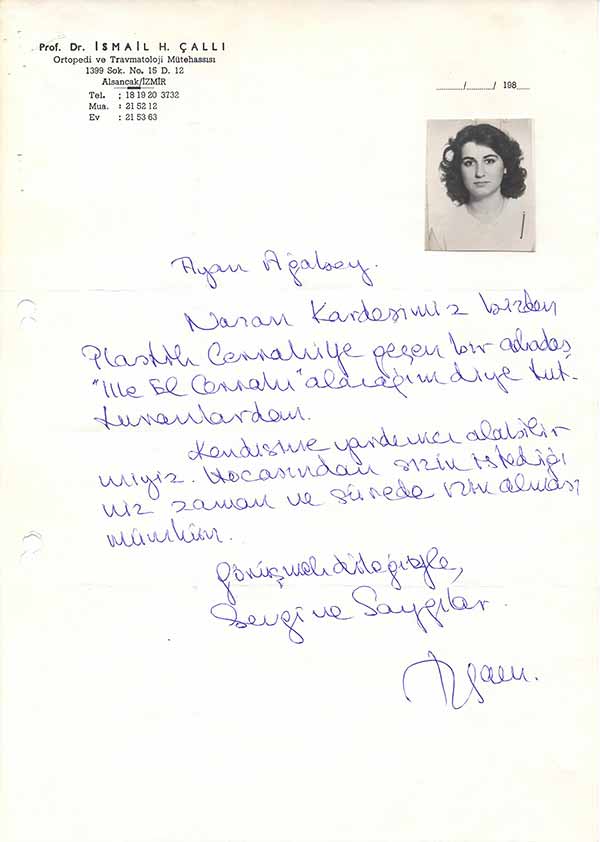 Prof. Dr. İSMAİL H. ÇALLI
Ortopedi ve Travmatoloji Mütehassısı
1399 Sok. No. 15 D. 12
Alsancak/İZMİR
Tel. : 18 19 20 3732
Mua. : 21 52 12
Ev : 21 53 63
......../......../ 198....
Ağabey.
Kardeşimiz bizden
Plastik Cerrahiye geçen bir arkadaş
"İlle El Cerrahı" olacağım diye tut-
turanlardan.
Kendisine yardımcı olabilir
miyiz. Hocasından sizin istediği
niz zaman ve sürede izin alması
mümkün.
Görüşmek dileğiyle,
Sevgi ve Saygılar.